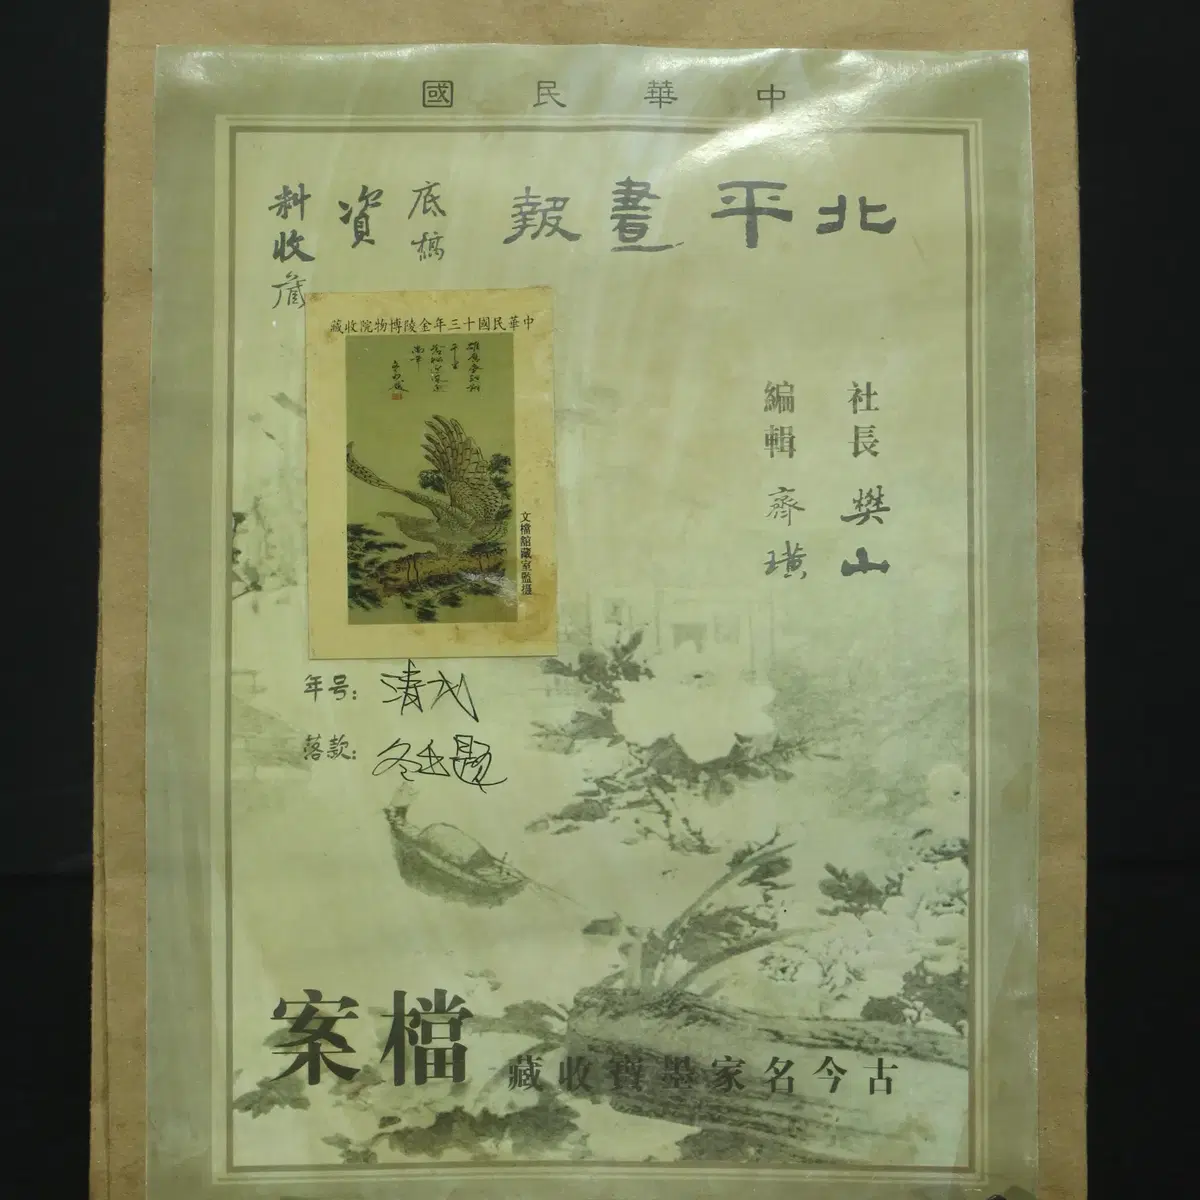 中華民國
北平畫報
底稿
資
料收藏
中華民國十三年金陵博物院收藏
文檔館藏室監攝
社長 樊山
編輯 齊璜
年号：清代
落款：
古今名家墨寶收藏
檔案